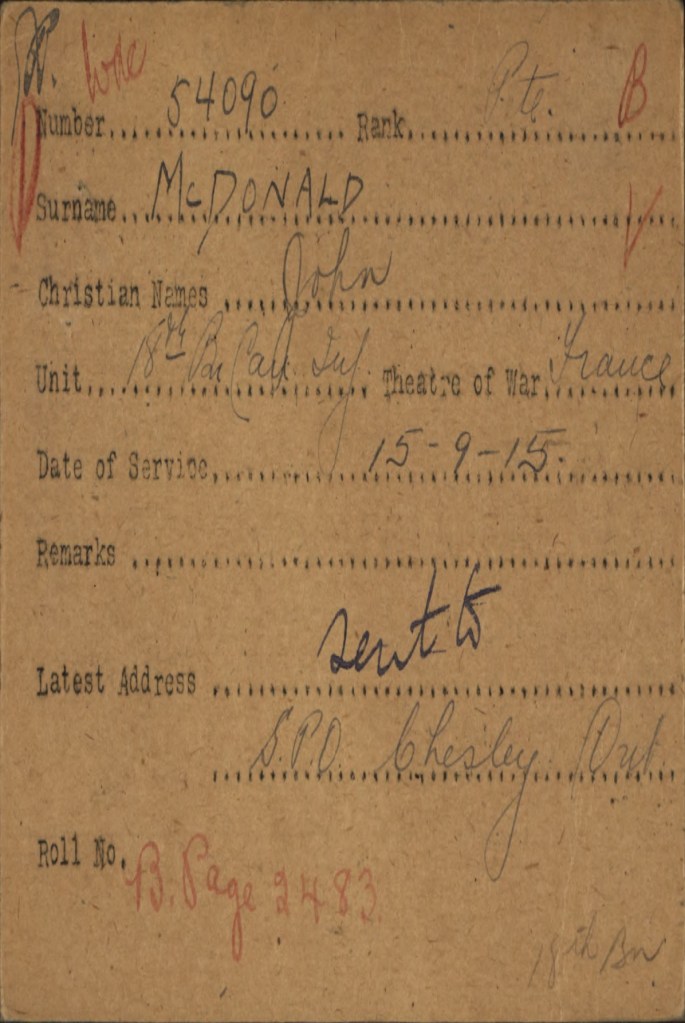 Number 54090 Rank Pte. B
Surname McDONALD
Christian Names John
Unit 18th Bn Can. Inf. Theatre of War France
Date of Service 15-9-15.
Remarks
sent to
Latest Address
G.P.O. Chesley Ont.
Roll No. B. Page 2483
18th Bn